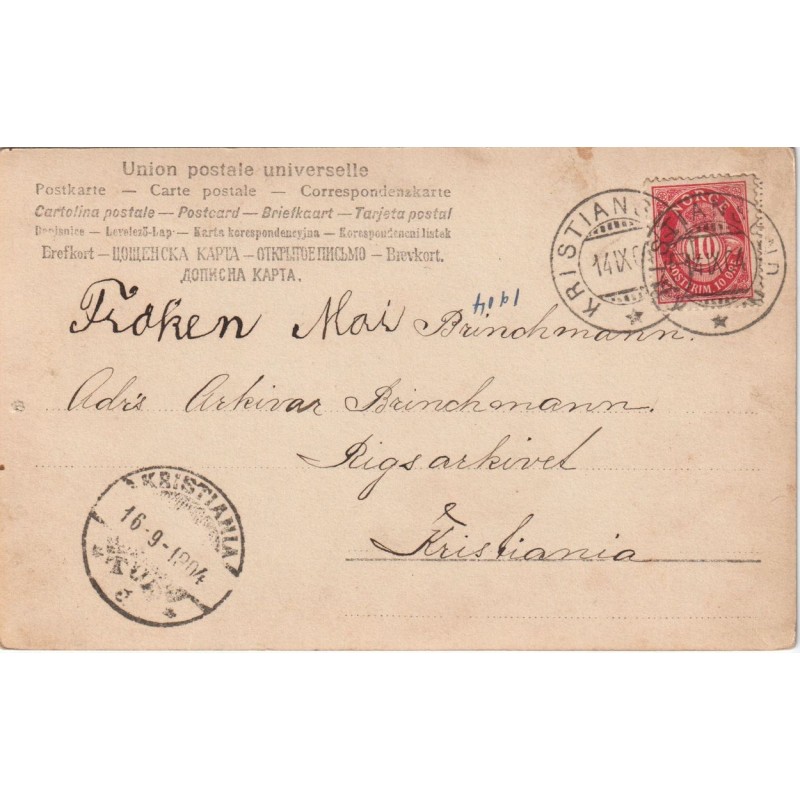 Union postale universelle
Postkarte — Carte postale — Correspondenzkarte
Cartolina postale — Postcard — Briefkaart — Tarjeta postal
Dopisnice — Levelező-Lap — Karta korespondencyjna — Korespondencni listek
Brefkort — ЦОЩЕНСКА КАРТА — ОТКРЫТОЕ ПИСЬМО — Brevkort.
ДОПИСНА КАРТА.
Frøken Mai Brinchmann.
1904
Adrs Arkivar Brinchmann.
Rigsarkivet
Kristiania
NORGE
10
POSTFRIM. 10 ØRE
KRISTIAN
14 IX
14 IX 04
KRISTIANIA
16-9-1904
TUR